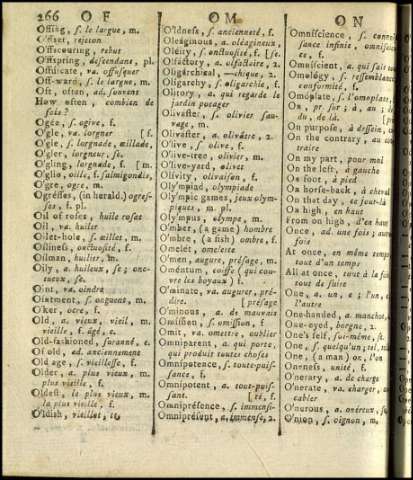 266 OF OM ON
Offing, ſ. le largue, m.
Offset, rejeton
Offscouring, rebut
Offspring, deſcendans, pl.
Offuſcate, va. offuſquer
Off-ward, ſ. le largue, m.
Oft, often, ad. ſouvent
How often, combien de
fois?
Ogée, ſ. ogive, f.
O'gle, va. lorgner [f.
O'gle, ſ. lorgnade, œillade,
O'gler, lorgneur, ſe.
O'gling, lorgnade, f. [m.
O'glio, oille, f. ſalmigondis,
O'gre, ogre, m.
Ogréſſes, (in herald.) ogreſ-
ſes, f. pl.
Oil of roſes, huile roſat
Oil, va. huiler
Oilet-hole, ſ. œillet, m.
Oilineſs, onctuoſité, f.
Oilman, huilier, m.
Oily, a. huileux, ſe; onc-
tueux, ſe.
Oint, va. oindre
Ointment, ſ. onguent, m.
O'ker, ocre, f.
Old, a. vieux, vieil, m.
vieille, f. âgé, e.
Old-faſhioned, ſuranné, e.
Of old, ad. anciennement
Old age, ſ. vieilleſſe, f.
Older, a. plus vieux, m.
plus vieille, f.
Oldeſt, le plus vieux, m.
la plus vieille, f.
O'ldiſh, vieillot, te
O'ldneſs, ſ. ancienneté, f.
Oleáginous, a. oléagineux,
Oléity, ſ. onctuoſité, f. [ſe.
Olfáctory, a. olfactoire, 2.
Oligárchical, —chique, 2.
Oligarchy, ſ. oligarchie, f.
Olitory, a. qui regarde le
jardin potager
Olivaſter, ſ. olivier ſau-
vage, m.
Olivaſter, a. olivâtre, 2.
O'live, ſ. olive, f.
O'live-tree, olivier, m.
O'live-yard, olivet
Olívity, olivaiſon, f.
Oly'mpiad, olympiade
Olympic games, jeux olym-
piques, m. pl.
Oly'mpus, olympe, m.
O'mber, (a game) hombre
O'mbre, (a fiſh) ombre, f.
Omelét, omelette
O'men, augure, préſage, m.
Oméntum, coiffe (qui cou-
vre les boyaux) f.
O'minate, va. augurer, pré-
dire. [préſage
O'minous, a. de mauvais
Omiſſion, ſ. omiſſion, f.
Omit, va. omettre, oublier
Omniparent, a. qui porte,
qui produit toutes choſes
Omnipotence, ſ. toute-puiſ-
ſance, f.
Omnipotent, a. tout-puiſ-
ſant. [té, f.
Omnipréſence, ſ. immenſi-
Omnipréſent, a. immenſe, 2.
Omniſcience, ſ. connoiſ-
ſance infinie, omniſcien-
ce, f.
Omniſcient, a. qui ſait tout
Omology, ſ. reſſemblance,
conformité, f.
Omóplate, ſ. l'omoplate,
On, pr. ſur; à, au;
du, de là.
On purpoſe, à deſſein,
On the contrary, au con-
traire
On my part, pour moi
On the left, à gauche
On foot, à pied
On horſe-back, à cheval
On that day, ce jour-là
On high, en haut
From on high, d'en haut
Once, ad. une fois; autre-
fois
At once, en même temps
tout d'un temps
All at once, tout à la fois
tout de ſuite
One, a. un, e; l'un, e
l'autre
One-handed, a. manchot,
One-eyed, borgne, 2.
One's ſelf, ſoi-même, ſe
One, ſ. quelqu'un; tel,
One, (a man) on, l'on
Oneneſs, unité, f.
O'nerary, a. de charge
O'nerate, va. charger, ac-
cabler
O'nerous, a. onéreux, ſe
O'nion, ſ. oignon, m.